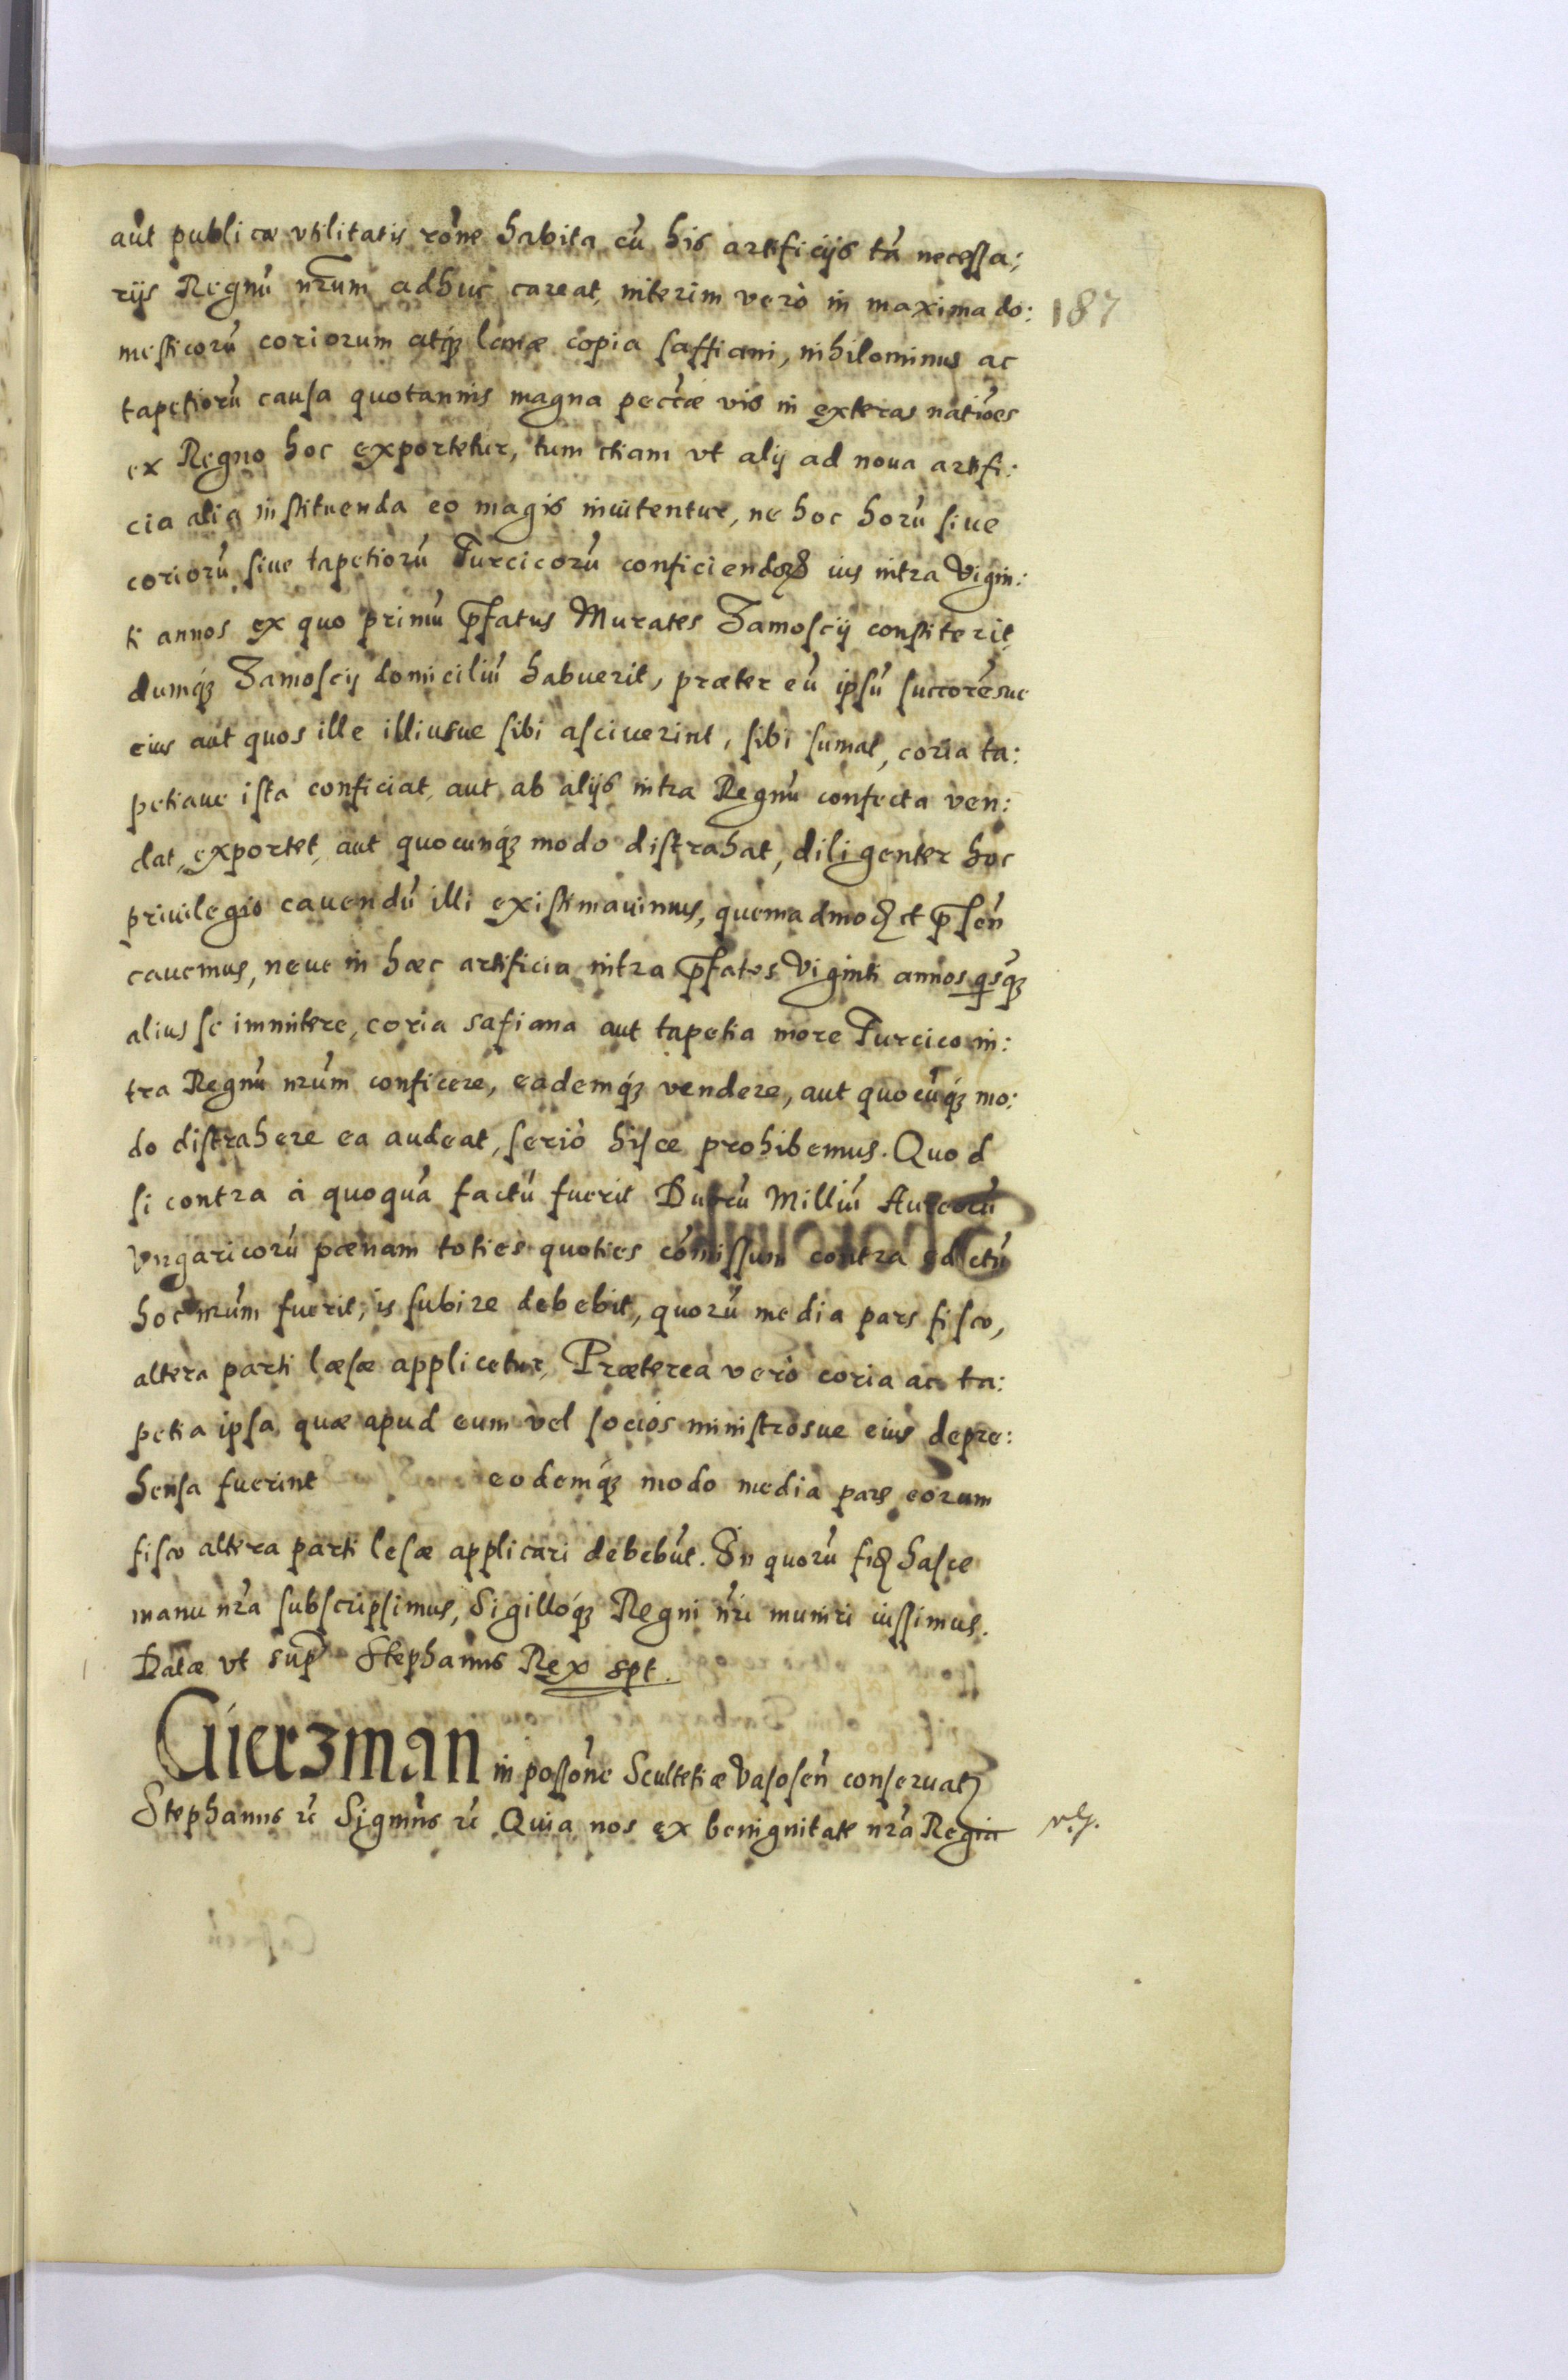 aut publicæ vtilitatis rõne habita cũ his artificijs tã necessa:
rijs Regnũ nrum adhuc careat, interim verò in maxima do:
187
mesticorũ coriorum atq́ʒ lanæ copia saffiani, nihilominus ac
tapetiorũ causa quotannis magna peccæ vis in exteras natiões
ex Regno hoc exportetur, tum etiam vt alij ad noua artifi:
cia alia instituenda eo magis inuitentur, ne hoc horũ siue
coriorũ siue tapetiorũ Turcicorũ conficiendorꝫ ius intra Vigin:
ti annos ex quo primũ p̃fatus Murates Zamoscij constiterit,
dumq́ʒ Zamoscij domiciliũ habuerit, præter eũ ipsũ succorẽsue
eius aut quos ille illiusue sibi asciuerint, sibi sumat, coria ta:
petiaue ista conficiat, aut ab alijs intra Regnũ confecta ven:
dat, exportet, aut quocunq́ʒ modo distrahat, diligenter hoc
priuilegio cauendũ illi existimauimus, quemadmoꝫ et p̃sen̄
cauemus, neue in hæc artificia intra p̃fatos Viginti annos qsq́ʒ
alius se immitere, coria safiana aut tapetia more Turcico in:
tra Regnũ nrũm conficere, eademq́ʒ vendere, aut quocũq́ʒ mo:
do distrahere ea audeat, seriò hisce prohibemus. Quod
si contra à quoquã factũ fuerit Duorũ Milliũ Aureorũ
Vngaricorũ pœnam toties quoties cõmissum contra edictũ
hoc nrũm fuerit, is subire debebit, quorũ media pars fisco,
altera parti læsæ applicetur, Præterea verò coria ac ta:
petia ipsa quæ apud eum vel socios ministrosue eius depre:
hensa fuerint eodemq́ʒ modo media pars eorum
fisco altera parti lesæ applicari debebũt. In quorũ fidꝫ hasce
manu nrã subscripsimus, Sigilloq́ʒ Regni nri muniri iussimus.
Datæ vt sup̃ Stephanus Rex spt.
Cúierzman in possõne Scultetiæ Vasosen̄ conseruatꝫ
Stephanus rc̃ Sigmũs rc̃ Quia nos ex benignitate nrã Regia